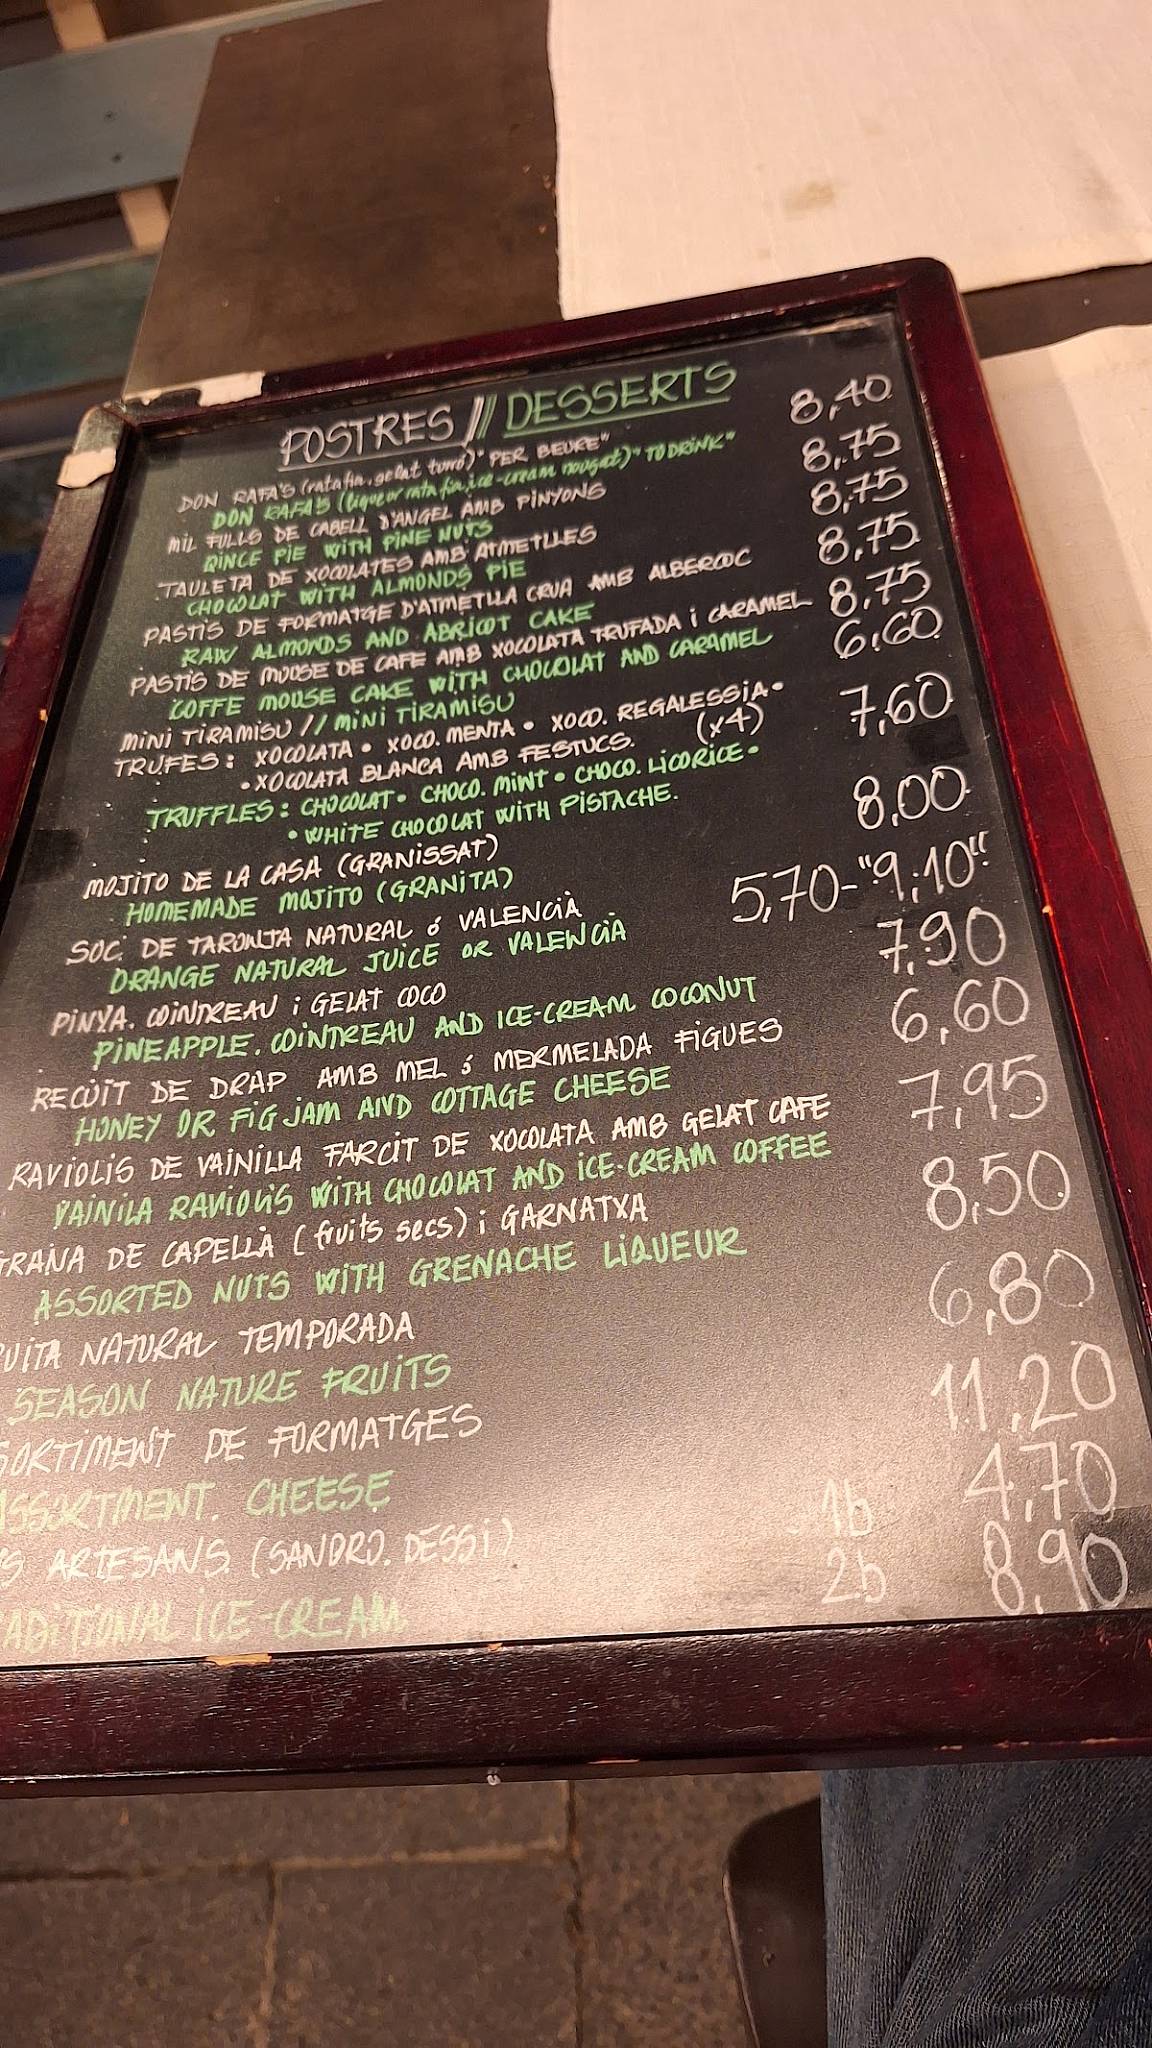 POSTRES // DESSERTS
DON RAFA'S (ratafia, gelat torró) "PER BEURE" 8,40
DON RAFA'S (liqueor ratafia, ice-cream nouget) "TO DRINK"
MIL FULLS DE CABELL D'ANGEL AMB PINYONS 8,75
QINCE PIE WITH PINE NUTS
TAULETA DE XOCOLATES AMB ATMETLLES 8,75
CHOCOLAT WITH ALMONDS PIE
PASTIS DE FORMATGE D'ATMETLLA CRUA AMB ALBERCOC 8,75
RAW ALMONDS AND ABRICOT CAKE
PASTIS DE MOUSE DE CAFE AMB XOCOLATA TRUFADA i CARAMEL 8,75
COFFE MOUSE CAKE WITH CHOCOLAT AND CARAMEL
MINI TIRAMISU // MINI TIRAMISU 6,60
TRUFES: XOCOLATA • XOCO. MENTA • XOCO. REGALESSIA •
• XOCOLATA BLANCA AMB FESTUCS. (x4) 7,60
TRUFFLES: CHOCOLAT • CHOCO. MINT • CHOCO. LICORICE •
• WHITE CHOCOLAT WITH PISTACHE.
MOJITO DE LA CASA (GRANISSAT) 8,00
HOMEMADE MOJITO (GRANITA)
SOC. DE TARONJA NATURAL ó VALENCIÀ 5,70-"9,10"
ORANGE NATURAL JUICE OR VALENCIÀ
PINYA. COINTREAU i GELAT COCO 7,90
PINEAPPLE. COINTREAU AND ICE-CREAM COCONUT
RECUIT DE DRAP AMB MEL ó MERMELADA FIGUES 6,60
HONEY OR FIG JAM AND COTTAGE CHEESE
RAVIOLIS DE VAINILLA FARCIT DE XOCOLATA AMB GELAT CAFE 7,95
VAINILA RAVIOLIS WITH CHOCOLAT AND ICE-CREAM COFFEE
GRANA DE CAPELLÀ (fruits secs) i GARNATXA 8,50
ASSORTED NUTS WITH GRENACHE LIQUEUR
UITA NATURAL TEMPORADA 6,80
SEASON NATURE FRUITS
SORTIMENT DE FORMATGES 11,20
ASSORTMENT. CHEESE
S ARTESANS (SANDRO. DESSI) 1b 4,70
ADITIONAL ICE-CREAM 2b 8,90